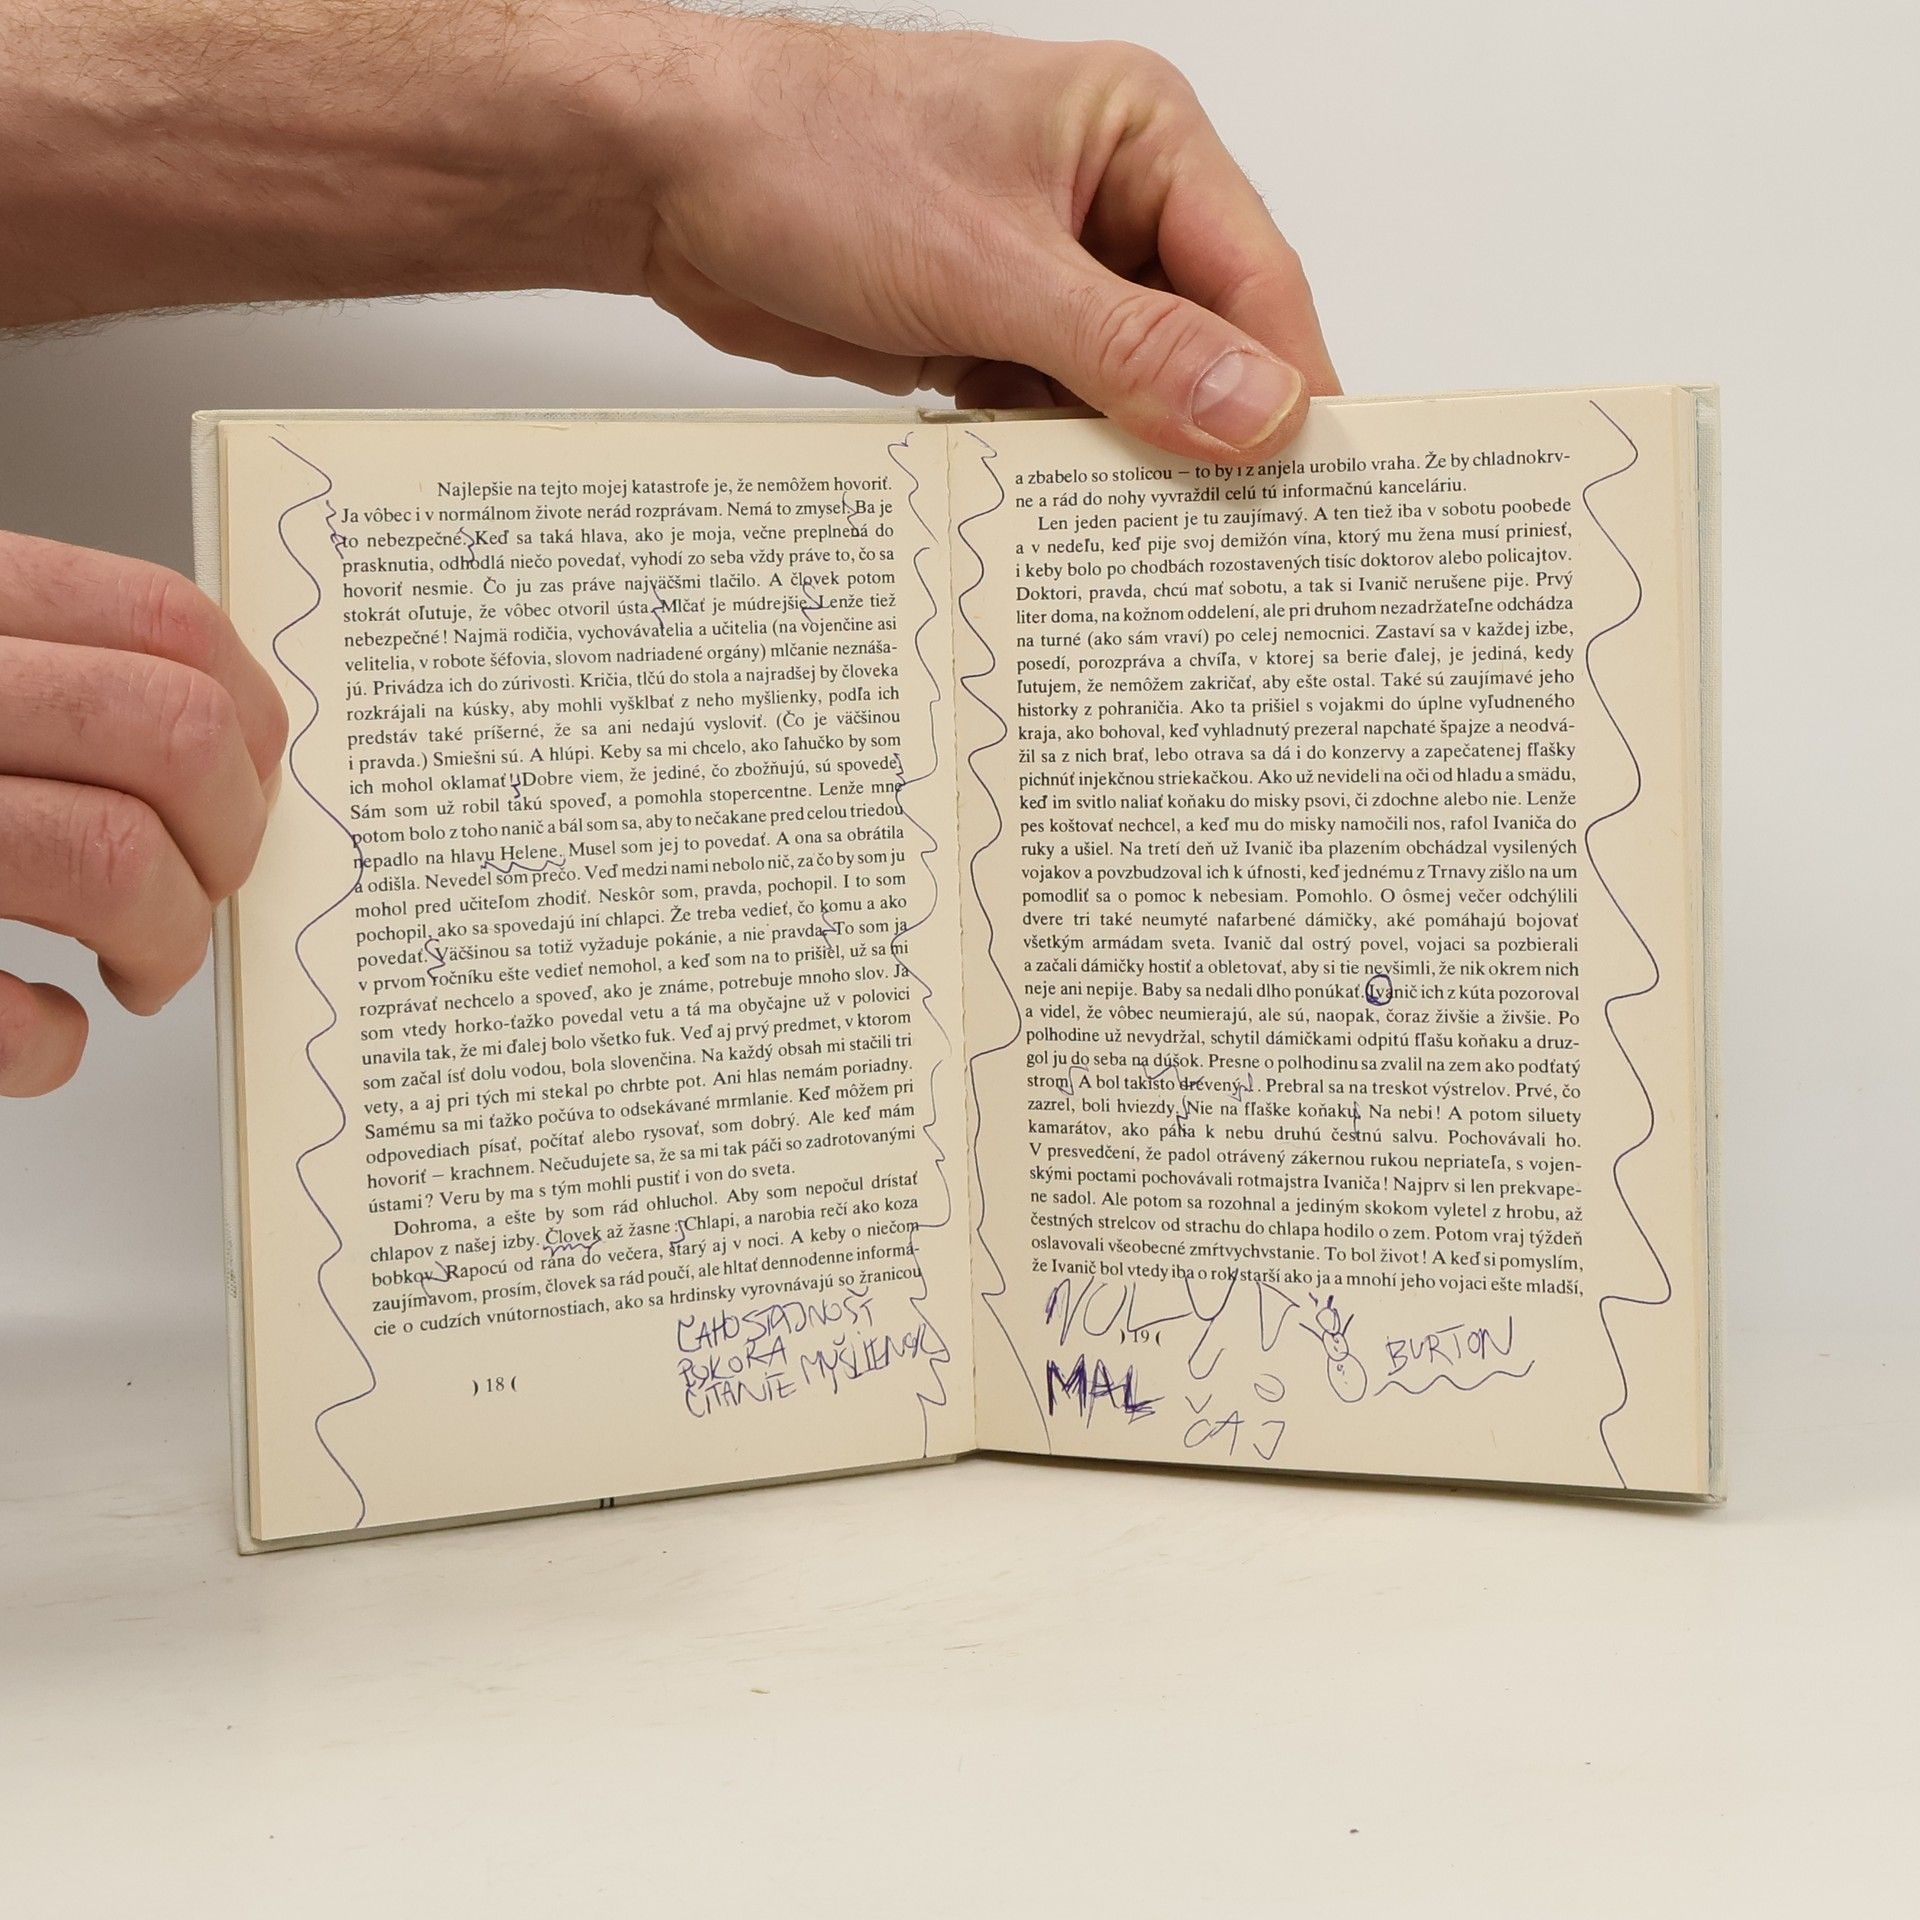 Najlepšie na tejto mojej katastrofe je, že nemôžem hovoriť.
Ja vôbec i v normálnom živote nerád rozprávam. Nemá to zmysel. Ba je
to nebezpečné. Keď sa taká hlava, ako je moja, večne preplnená do
prasknutia, odhodlá niečo povedať, vyhodí zo seba vždy práve to, čo sa
hovoriť nesmie. Čo ju zas práve najväčšmi tlačilo. A človek potom
stokrát oľutuje, že vôbec otvoril ústa. Mlčať je múdrejšie. Lenže tiež
nebezpečné! Najmä rodičia, vychovávatelia a učitelia (na vojenčine asi
velitelia, v robote šéfovia, slovom nadriadené orgány) mlčanie neznáša-
jú. Privádza ich do zúrivosti. Kričia, tlčú do stola a najradšej by človeka
rozkrájali na kúsky, aby mohli vyšklbať z neho myšlienky, podľa ich
predstáv také príšerné, že sa ani nedajú vysloviť. (Čo je väčšinou
i pravda.) Smiešni sú. A hlúpi. Keby sa mi chcelo, ako ľahučko by som
ich mohol oklamať! Dobre viem, že jediné, čo zbožňujú, sú spovede.
Sám som už robil takú spoveď, a pomohla stopercentne. Lenže mne
potom bolo z toho nanič a bál som sa, aby to nečakane pred celou triedou
nepadlo na hlavu Helene. Musel som jej to povedať. A ona sa obrátila
a odišla. Nevedel som prečo. Veď medzi nami nebolo nič, za čo by som ju
mohol pred učiteľom zhodiť. Neskôr som, pravda, pochopil. I to som
pochopil, ako sa spovedajú iní chlapci. Že treba vedieť, čo komu a ako
povedať. Väčšinou sa totiž vyžaduje pokánie, a nie pravda. To som ja
v prvom ročníku ešte vedieť nemohol, a keď som na to prišiel, už sa mi
rozprávať nechcelo a spoveď, ako je známe, potrebuje mnoho slov. Ja
som vtedy horko-ťažko povedal vetu a tá ma obyčajne už v polovici
unavila tak, že mi ďalej bolo všetko fuk. Veď aj prvý predmet, v ktorom
som začal ísť dolu vodou, bola slovenčina. Na každý obsah mi stačili tri
vety, a aj pri tých mi stekal po chrbte pot. Ani hlas nemám poriadny.
Samému sa mi ťažko počúva to odsekávané mrmlanie. Keď môžem pri
odpovediach písať, počítať alebo rysovať, som dobrý. Ale keď mám
hovoriť – krachnem. Nečudujete sa, že sa mi tak páči so zadrotovanými
ústami? Veru by ma s tým mohli pustiť i von do sveta.
Dohroma, a ešte by som rád ohluchol. Aby som nepočul drístať
chlapov z našej izby. Človek až žasne: Chlapi, a narobia rečí ako koza
bobkov. Rapocú od rána do večera, starý aj v noci. A keby o niečom
zaujímavom, prosím, človek sa rád poučí, ale hltať dennodenne informá-
cie o cudzích vnútornostiach, ako sa hrdinsky vyrovnávajú so žranicou
POKORA
ČÍTANIE MYŠLIENOK
) 18 (
a zbabelo so stolicou – to by i z anjela urobilo vraha. Že by chladnokrv-
ne a rád do nohy vyvraždil celú tú informačnú kanceláriu.
Len jeden pacient je tu zaujímavý. A ten tiež iba v sobotu poobede
a v nedeľu, keď pije svoj demižón vína, ktorý mu žena musí priniesť,
i keby bolo po chodbách rozostavených tisíc doktorov alebo policajtov.
Doktori, pravda, chcú mať sobotu, a tak si Ivanič nerušene pije. Prvý
liter doma, na kožnom oddelení, ale pri druhom nezadržateľne odchádza
na turné (ako sám vraví) po celej nemocnici. Zastaví sa v každej izbe,
posedí, porozpráva a chvíľa, v ktorej sa berie ďalej, je jediná, kedy
ľutujem, že nemôžem zakričať, aby ešte ostal. Také sú zaujímavé jeho
historky z pohraničia. Ako ta prišiel s vojakmi do úplne vyľudneného
kraja, ako bohoval, keď vyhladnutý prezeral napchaté špajze a neodvá-
žil sa z nich brať, lebo otrava sa dá i do konzervy a zapečatenej fľašky
pichnúť injekčnou striekačkou. Ako už nevideli na oči od hladu a smädu,
keď im svitlo naliať koňaku do misky psovi, či zdochne alebo nie. Lenže
pes koštovať nechcel, a keď mu do misky namočili nos, rafol Ivaniča do
ruky a ušiel. Na tretí deň už Ivanič iba plazením obchádzal vysilených
vojakov a povzbudzoval ich k úfnosti, keď jednému z Trnavy zišlo na um
pomodliť sa o pomoc k nebesiam. Pomohlo. O ôsmej večer odchýlili
dvere tri také neumyté nafarbené dámičky, aké pomáhajú bojovať
všetkým armádam sveta. Ivanič dal ostrý povel, vojaci sa pozbierali
a začali dámičky hostiť a obletovať, aby si tie nevšimli, že nik okrem nich
neje ani nepije. Baby sa nedali dlho ponúkať. Ivanič ich z kúta pozoroval
a videl, že vôbec neumierajú, ale sú, naopak, čoraz živšie a živšie. Po
polhodine už nevydržal, schytil dámičkami odpitú fľašu koňaku a druz-
gol ju do seba na dúšok. Presne o polhodinu sa zvalil na zem ako podťatý
strom. A bol takisto drevený... Prebral sa na treskot výstrelov. Prvé, čo
zazrel, boli hviezdy. Nie na fľaške koňaku. Na nebi! A potom siluety
kamarátov, ako pália k nebu druhú čestnú salvu. Pochovávali ho.
V presvedčení, že padol otrávený zákernou rukou nepriateľa, s vojen-
skými poctami pochovávali rotmajstra Ivaniča! Najprv si len prekvape-
ne sadol. Ale potom sa rozohnal a jediným skokom vyletel z hrobu, až
čestných strelcov od strachu do chlapa hodilo o zem. Potom vraj týždeň
oslavovali všeobecné zmŕtvychvstanie. To bol život! A keď si pomyslím,
že Ivanič bol vtedy iba o rok starší ako ja a mnohí jeho vojaci ešte mladší,
) 19 (
BURTON
MAL
ČAJ